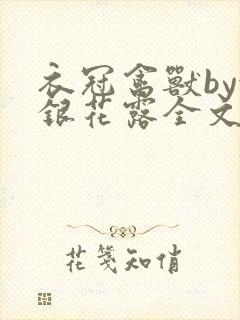 衣冠禽獸by
銀花露全文
花箋知俏